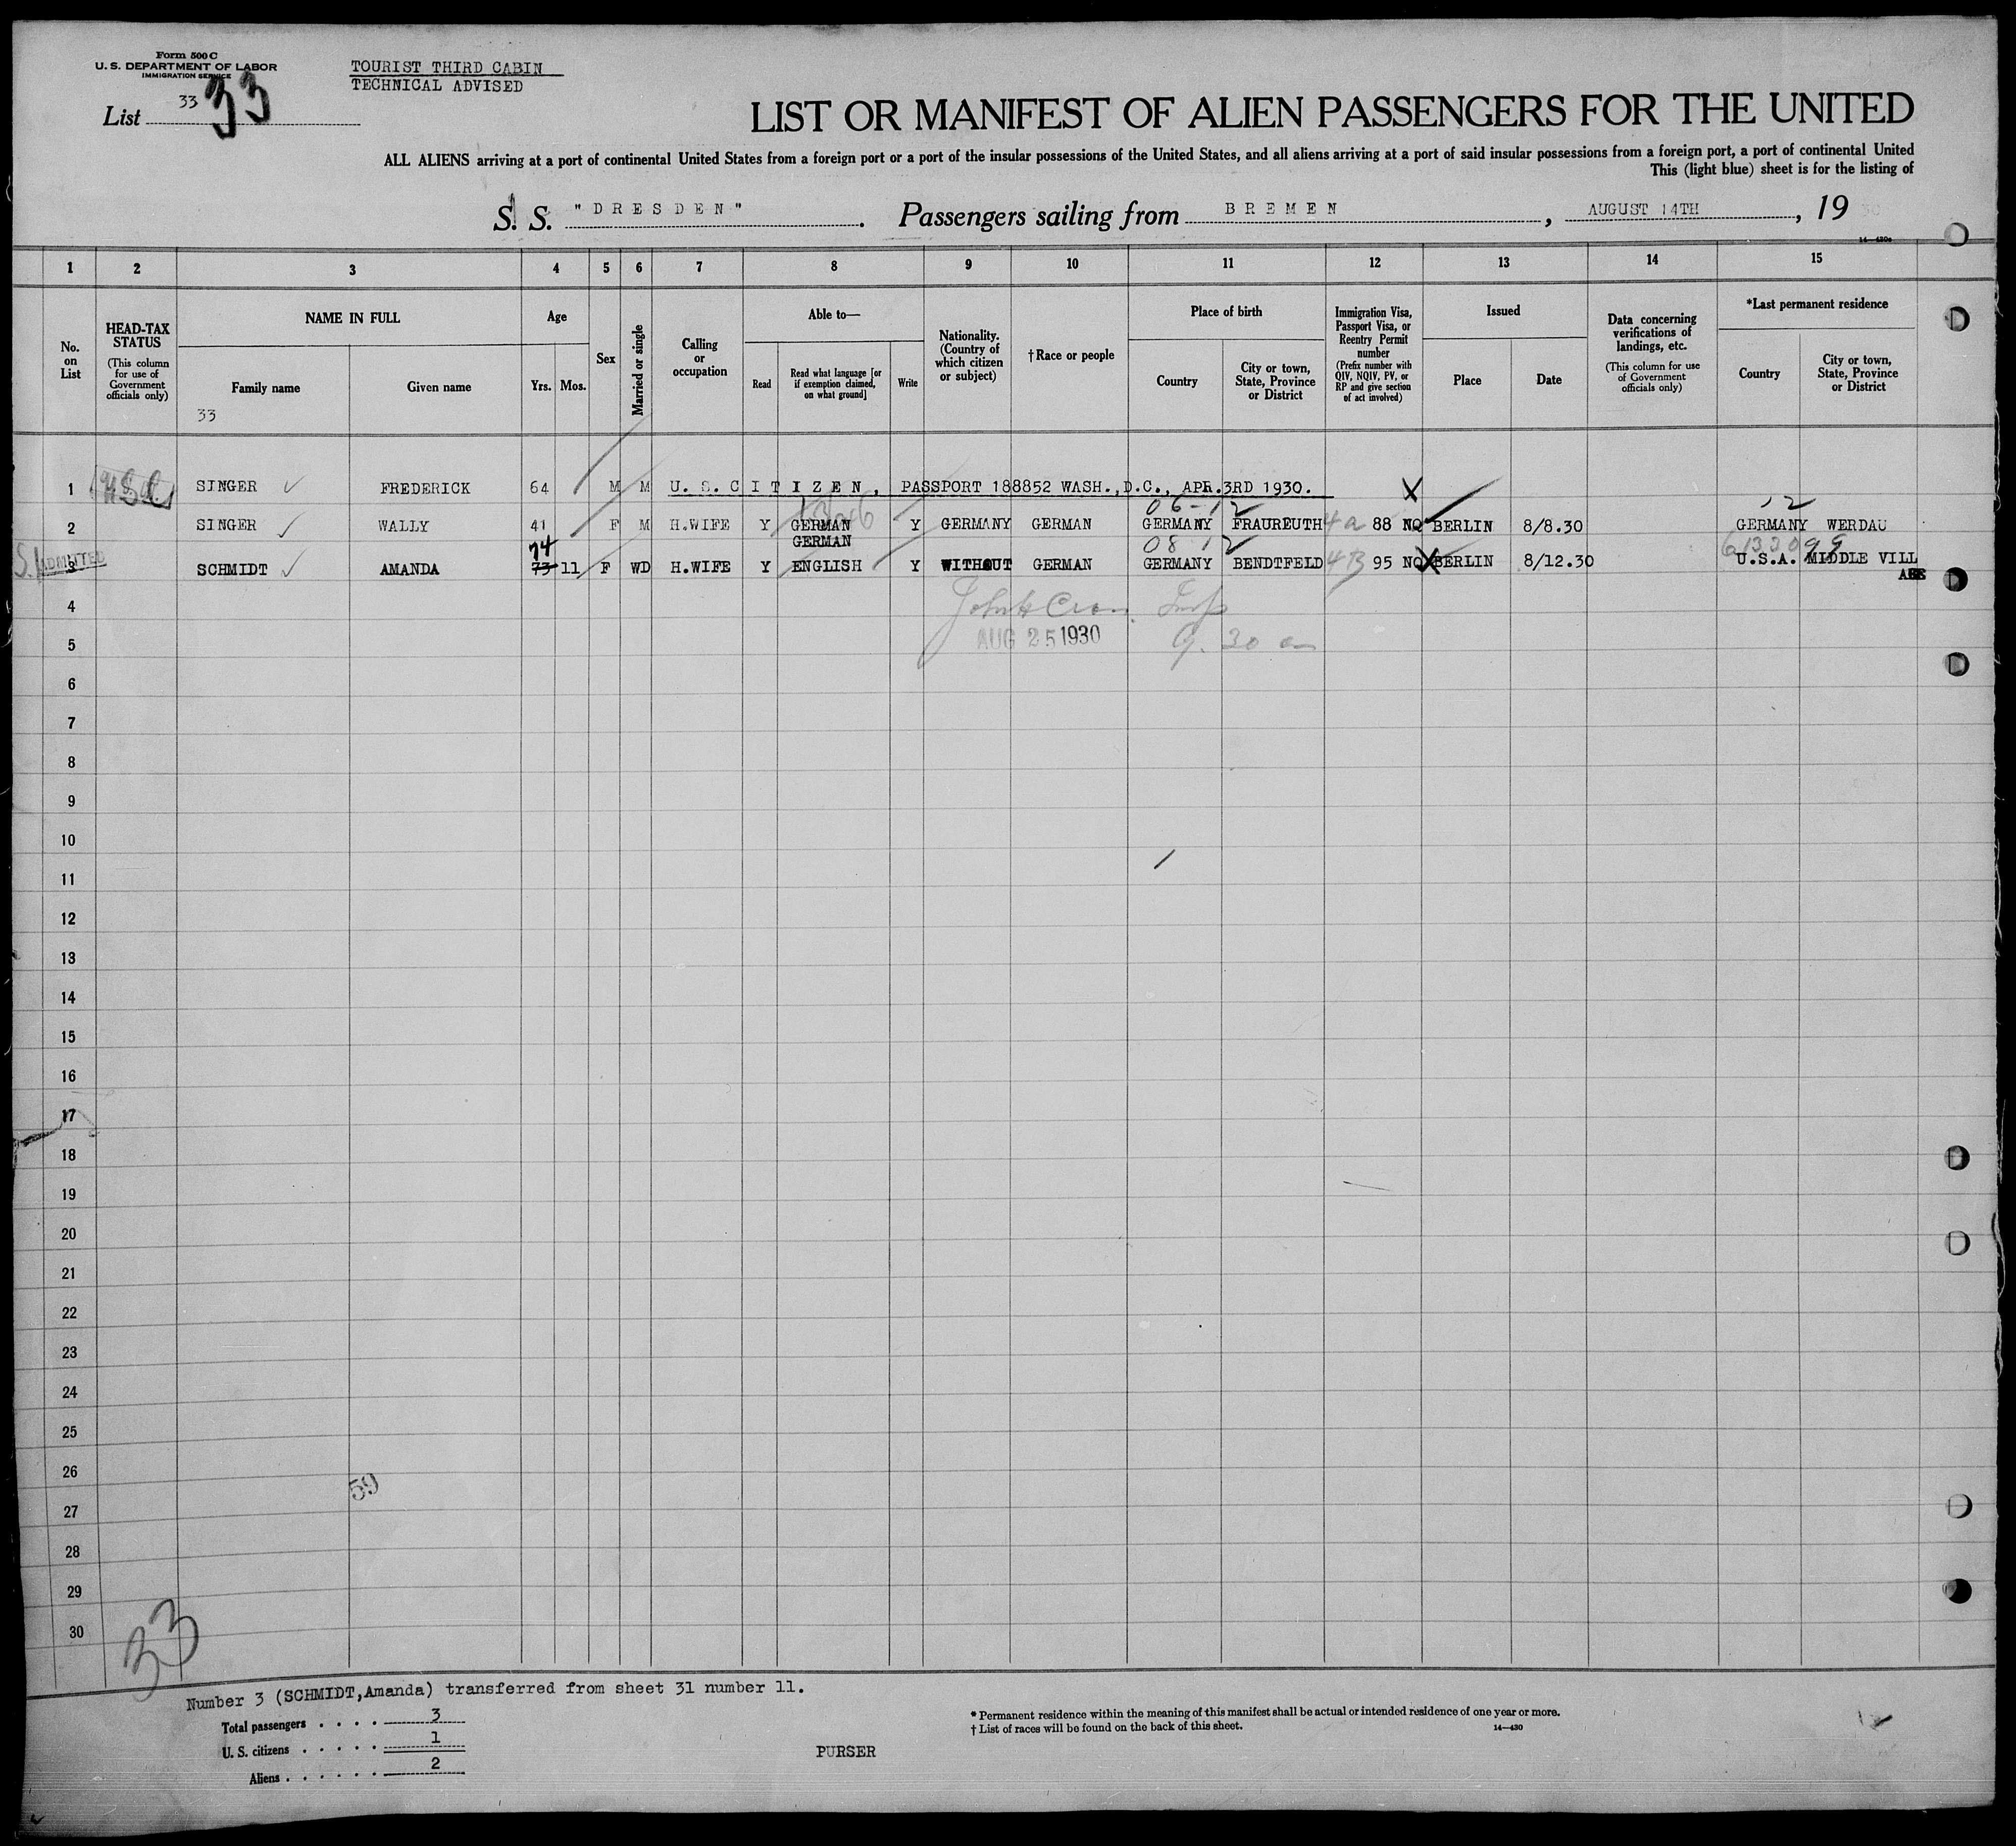 Form 500 C
U. S. DEPARTMENT OF LABOR
IMMIGRATION SERVICE
TOURIST THIRD CABIN
TECHNICAL ADVISED
List 33 33
LIST OR MANIFEST OF ALIEN PASSENGERS FOR THE UNITED
ALL ALIENS arriving at a port of continental United States from a foreign port or a port of the insular possessions of the United States, and all aliens arriving at a port of said insular possessions from a foreign port, a port of continental United
This (light blue) sheet is for the listing of
S. S. "DRESDEN". Passengers sailing from BREMEN, AUGUST 14TH, 1930
14—430a
1 2 3 4 5 6 7 8 9 10 11 12 13 14 15
No. on List
HEAD-TAX STATUS
(This column for use of Government officials only)
NAME IN FULL
Family name
Given name
33
Age
Yrs. Mos.
Sex
Married or single
Calling or occupation
Able to—
Read
Read what language [or if exemption claimed, on what ground]
Write
Nationality. (Country of which citizen or subject)
†Race or people
Place of birth
Country
City or town, State, Province or District
Immigration Visa, Passport Visa, or Reentry Permit number
(Prefix number with QIV, NQIV, PV, or RP and give section of act involved)
Issued
Place
Date
Data concerning verifications of landings, etc.
(This column for use of Government officials only)
*Last permanent residence
Country
City or town, State, Province or District
1 USC SINGER FREDERICK 64 M M U. S. CITIZEN, PASSPORT 188852 WASH.,D.C., APR.3RD 1930. X
06-12 12
2 SINGER WALLY 41 F M H.WIFE Y GERMAN Y GERMANY GERMAN GERMANY FRAUREUTH 4a 88 NQ BERLIN 8/8.30 GERMANY WERDAU
74 GERMAN 08 12 99
ADMITTED
3 SCHMIDT AMANDA 73 11 F WD H.WIFE Y ENGLISH Y WITHOUT GERMAN GERMANY BENDTFELD 4B 95 NQ X BERLIN 8/12.30 U.S.A. MIDDLE VILL
AGE
4
AUG 25 1930 9.30 am
5
6
7
8
9
10
11
12
13
14
15
16
17
18
19
20
21
22
23
24
25
26
59
27
28
29
30
33
Number 3 (SCHMIDT,Amanda) transferred from sheet 31 number 11.
Total passengers . . . . 3
U. S. citizens . . . . . 1
Aliens . . . . . . 2
PURSER
* Permanent residence within the meaning of this manifest shall be actual or intended residence of one year or more.
† List of races will be found on the back of this sheet.
14—430